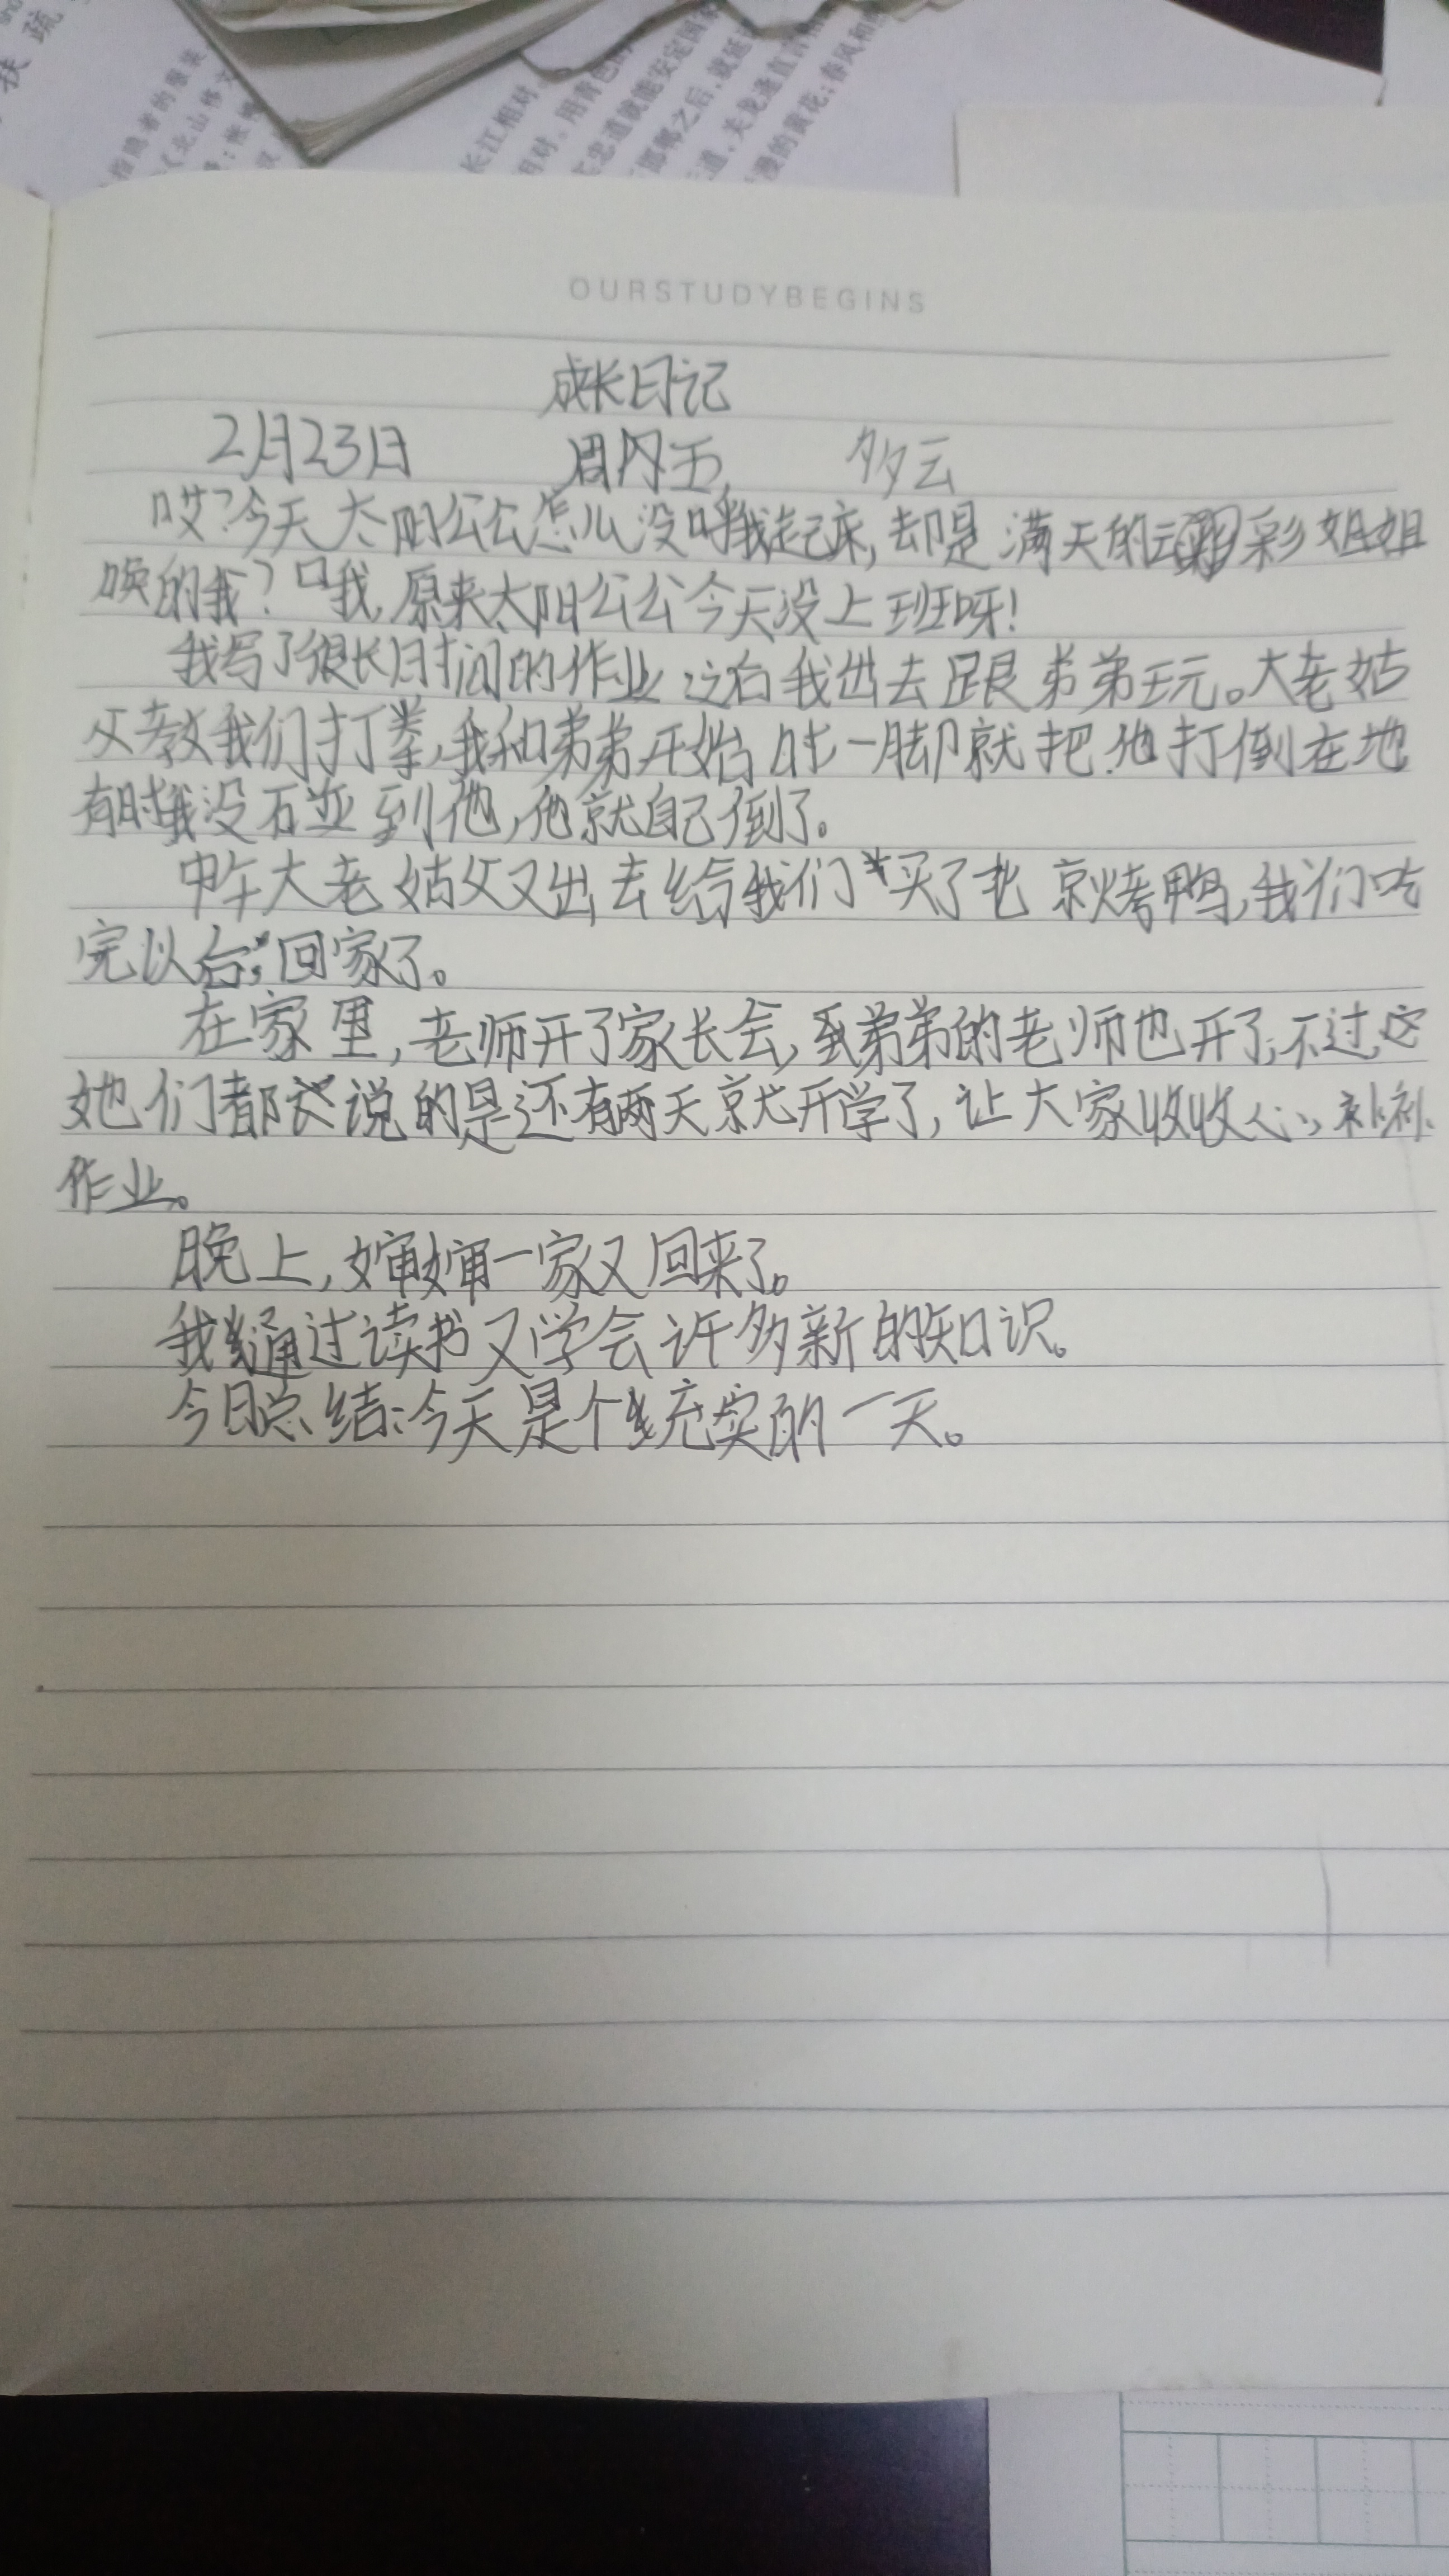 OURSTUDYBEGINS
成长日记
2月23日 周五 多云
哎?今天太阳公公怎么没叫我起床,却是满天的云彩姐姐
唤的我?哦,原来太阳公公今天没上班呀!
我写了很长时间的作业之后我出去跟弟弟玩。大老姑
父教我们打拳,我和弟弟开始时一脚就把他打倒在地
有时我没碰到他,他就自己倒了。
中午大老姑父又出去给我们买了北京烤鸭,我们吃
完以后,回家了。
在家里,老师开了家长会,弟弟的老师也开了,不过,
她们都说的是还有两天就开学了,让大家收收心,补补
作业。
晚上,婶婶一家又回来了。
我通过读书又学会许多新的知识。
今日总结:今天是个充实的一天。